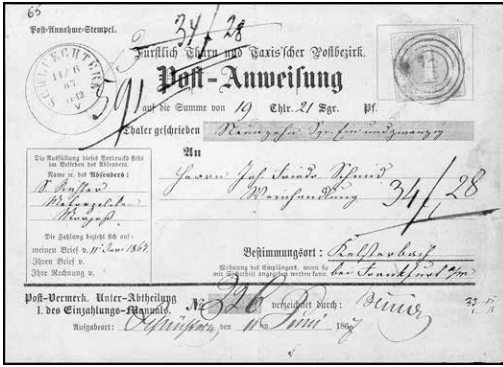 65
Post-Annahme-Stempel.
34/28
Fürstlich Thurn und Taxis'scher Postbezirk.
SCHLUECHTERN
11/6
Post-Anweisung
auf die Summe von 19 Thlr. 21 Sgr. Pf.
Thaler geschrieben Neunzehn
An
Die Ausfüllung dieses Vordrucks steht
im Belieben des Absenders:
Name u. des Absenders:
Herrn Joh. Friedr. Schmid
Weinhandlung
34/28
Die Zahlung bezieht sich auf:
meinen Brief v. 11 Juni 1867.
Ihren Brief v.
Ihre Rechnung v.
Bestimmungsort: Kelsterbach
Wohnung des Empfängers, wenn sie
mit Sicherheit angegeben werden kann.
bei Frankfurt a/m
Post-Vermerk. Unter-Abtheilung
I. des Einzahlungs-Manuals.
No 326 verzeichnet durch:
Aufgabeort: Schlüchtern, den 11 Juni 1867